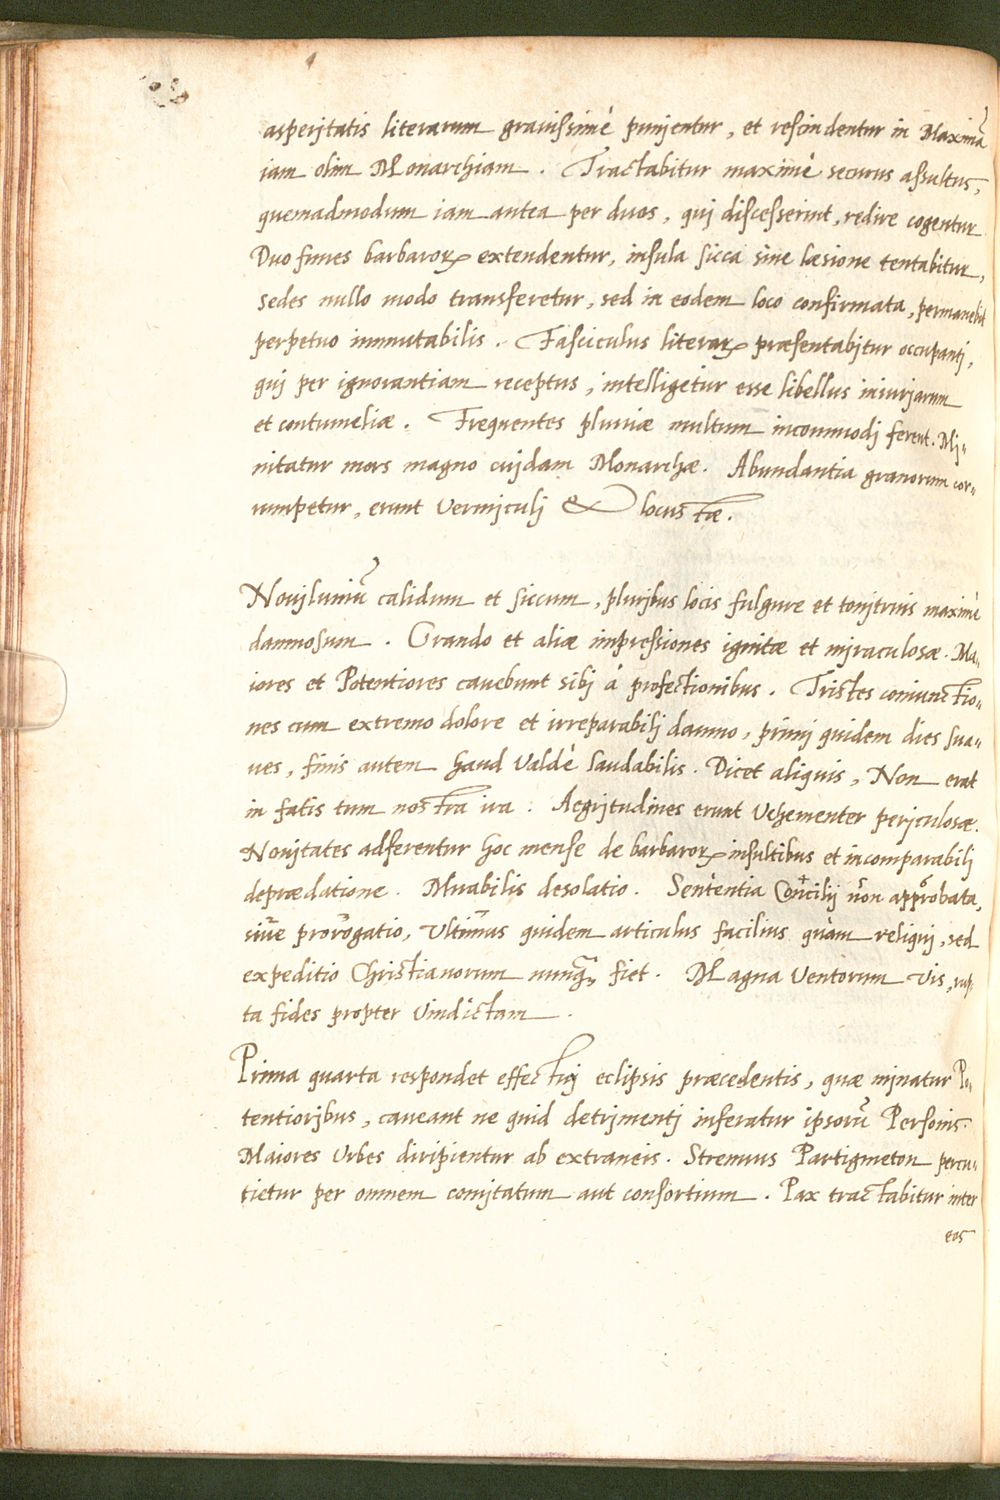 asperitatis literarum grauissimè punientur, et rescindentur in Maximā
iam olim Monarchiam. Tractabitur maximè secutus assultus,
quemadmodum iam antea per duos, qui discesserint, redire cogentur.
Duo fines barbaroꝝ extendentur, insula sicca sine læsione tentabitur,
sedes nullo modo transferetur, sed in eodem loco confirmata, permanebit
perpetuo immutabilis. Fasciculus literaꝝ præsentabitur occupanti,
qui per ignorantiam receptus, intelligetur esse libellus iniuriarum
et contumeliæ. Frequentes pluuiæ multum incommodi ferent. Mi„
nitatur mors magno cuidam Monarchæ. Abundantia granorum cor„
rumpetur, erunt Vermiculi & locustæ.
Nouiluniū calidum et siccum, pluribus locis fulgure et tonitruis maximè
damnosum. Grando et aliæ impressiones ignitæ et miraculosæ. Ma„
iores et Potentiores cauebunt sibi à profectionibus. Tristes coniunctio„
nes cum extremo dolore et irreparabili damno, primi quidem dies sua„
ues, finis autem haud Valdè laudabilis. Dicet aliquis, Non erat
in fatis tum nostra ira. Aegritudines erunt Vehementer periculosæ.
Nouitates adferentur hoc mense de barbaroꝝ insultibus et incomparabili
deprædatione. Mirabilis desolatio. Sententia Concilii non approbata,
siue prorogatio, Vltimus quidem articulus facilius quàm reliqui, sed
expeditio Christianorum nunqā fiet. Magna Ventorum Vis, rup„
ta fides propter Vindictam.
Prima quarta respondet effectui eclipsis præcedentis, quæ minatur Po„
tentioribus, caueant ne quid detrimenti inferatur ipsorū Personis.
Maiores Vrbes diripientur ab extraneis. Strenuus Partigmeton percu„
tietur per omnem comitatum aut consortium. Pax tractabitur inter
eos